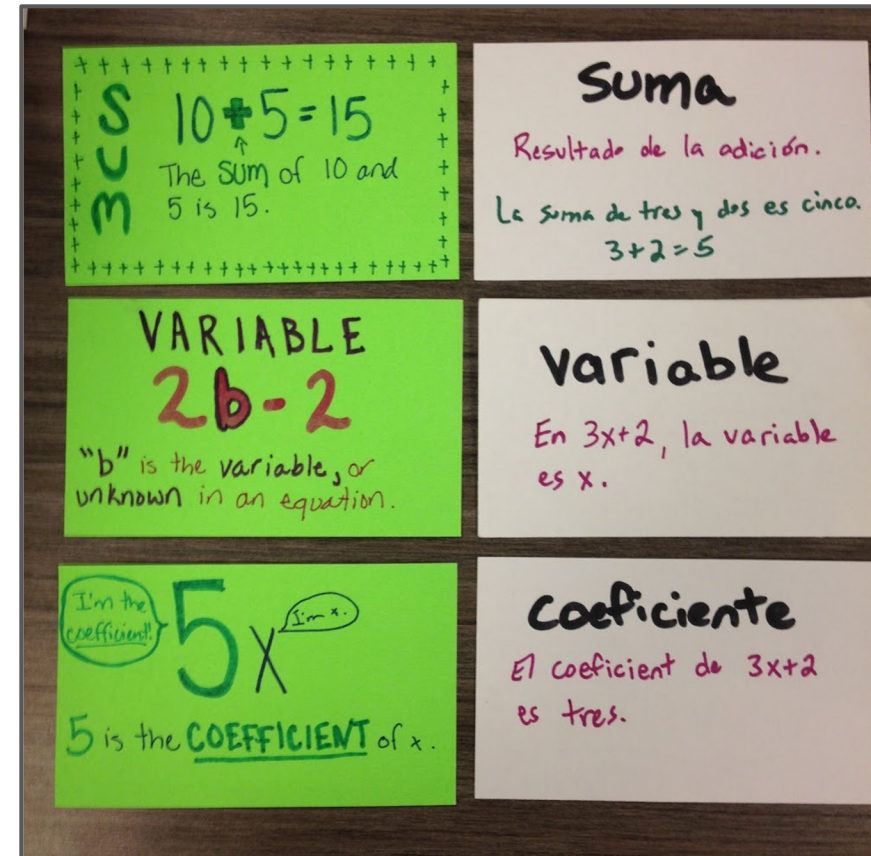 SUM
10 + 5 = 15
The SUM of 10 and
5 is 15.
Suma
Resultado de la adición.
La suma de tres y dos es cinco.
3+2=5
VARIABLE
2b-2
"b" is the variable, or
unknown in an equation.
Variable
En 3x+2, la variable
es x.
I'm the
coefficient!
5x
I'm x.
5 is the COEFFICIENT of x.
Coeficiente
El coeficient de 3x+2
es tres.